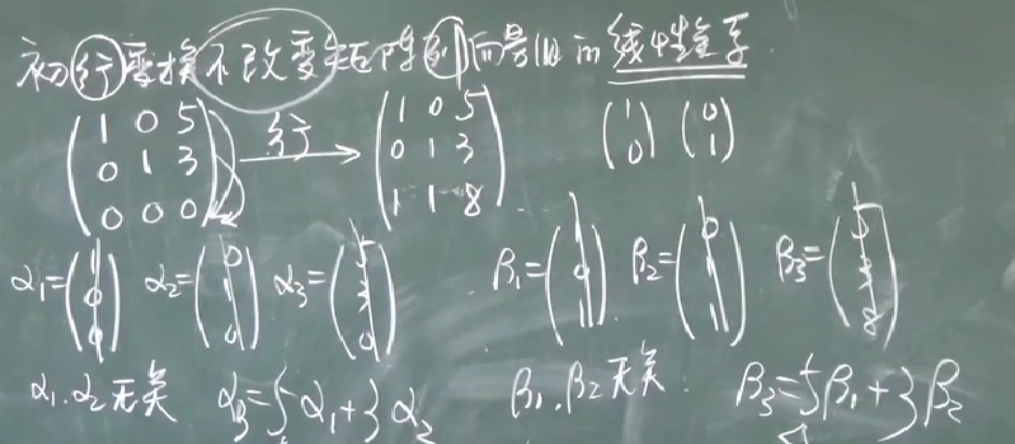 初行变换不改变矩阵列向量组的线性关系.
(1 0 5 行 (1 0 5 (1 (0
0 1 3 → 0 1 3 0) 1)
0 0 0) 1 1 8)
α₁=(1 0 0) α₂=(0 1 0) α₃=(5 3 0) β₁=(1 0 1) β₂=(0 1 1) β₃=(5 3 8)
α₁.α₂无关 α₃=5α₁+3α₂ β₁.β₂无关. β₃=5β₁+3β₂